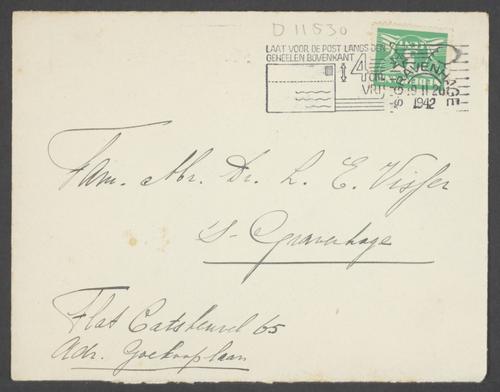 D 11530
LAAT VOOR DE POST LANGS DEN
GEHEELEN BOVENKANT
14
VRIJ
'S GRAVENHAGE
1942
Fam. Mr. Dr. L. E. Visser
's-Gravenhage
Flat Catsheuvel 65
Adr. Goekooplaan